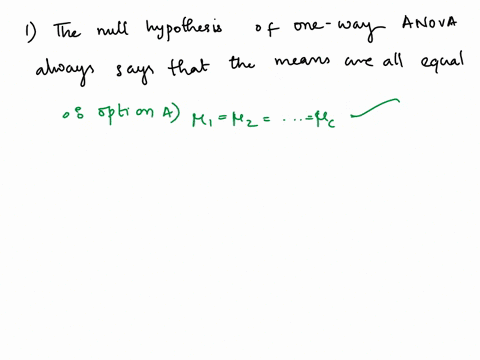 1) The null hypothesis of one-way ANOVA
always says that the means are all equal
∴ option A) μ₁ = μ₂ = .... = μ_c ✓